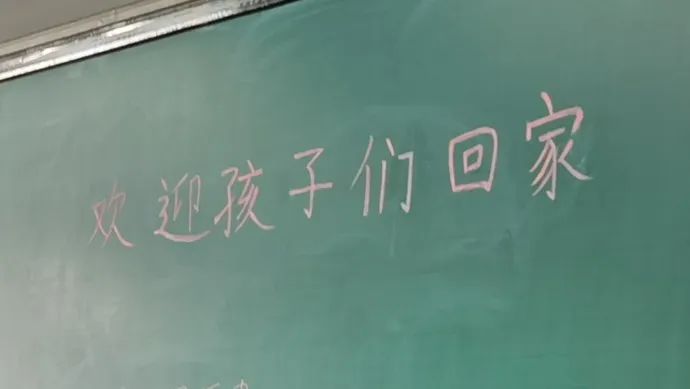 欢迎孩子们回家